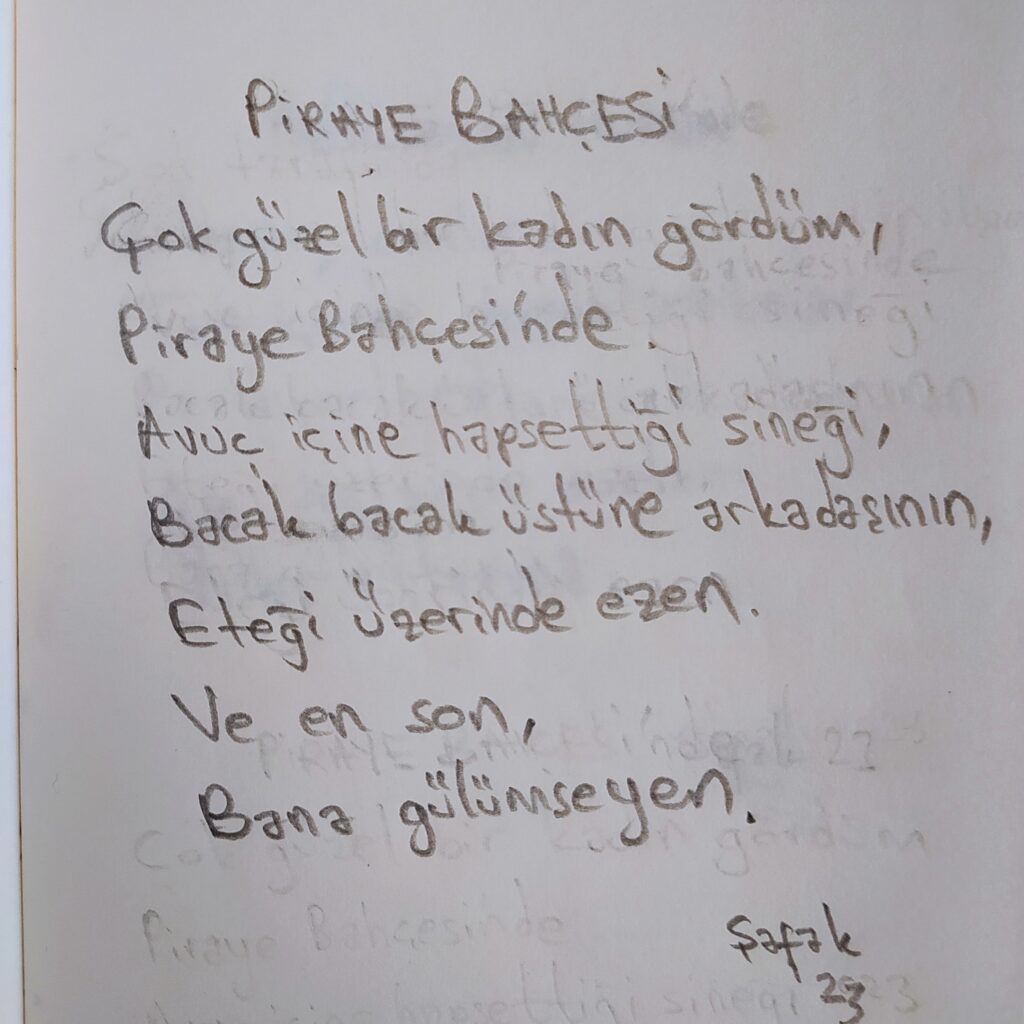 PİRAYE BAHÇESİ
Çok güzel bir kadın gördüm,
Piraye Bahçesi'nde.
Avuc içine hapsettiği sineği,
Bacak bacak üstüne arkadaşının,
Eteği üzerinde ezen.
Ve en son,
Bana gülümseyen.
Şafak
23